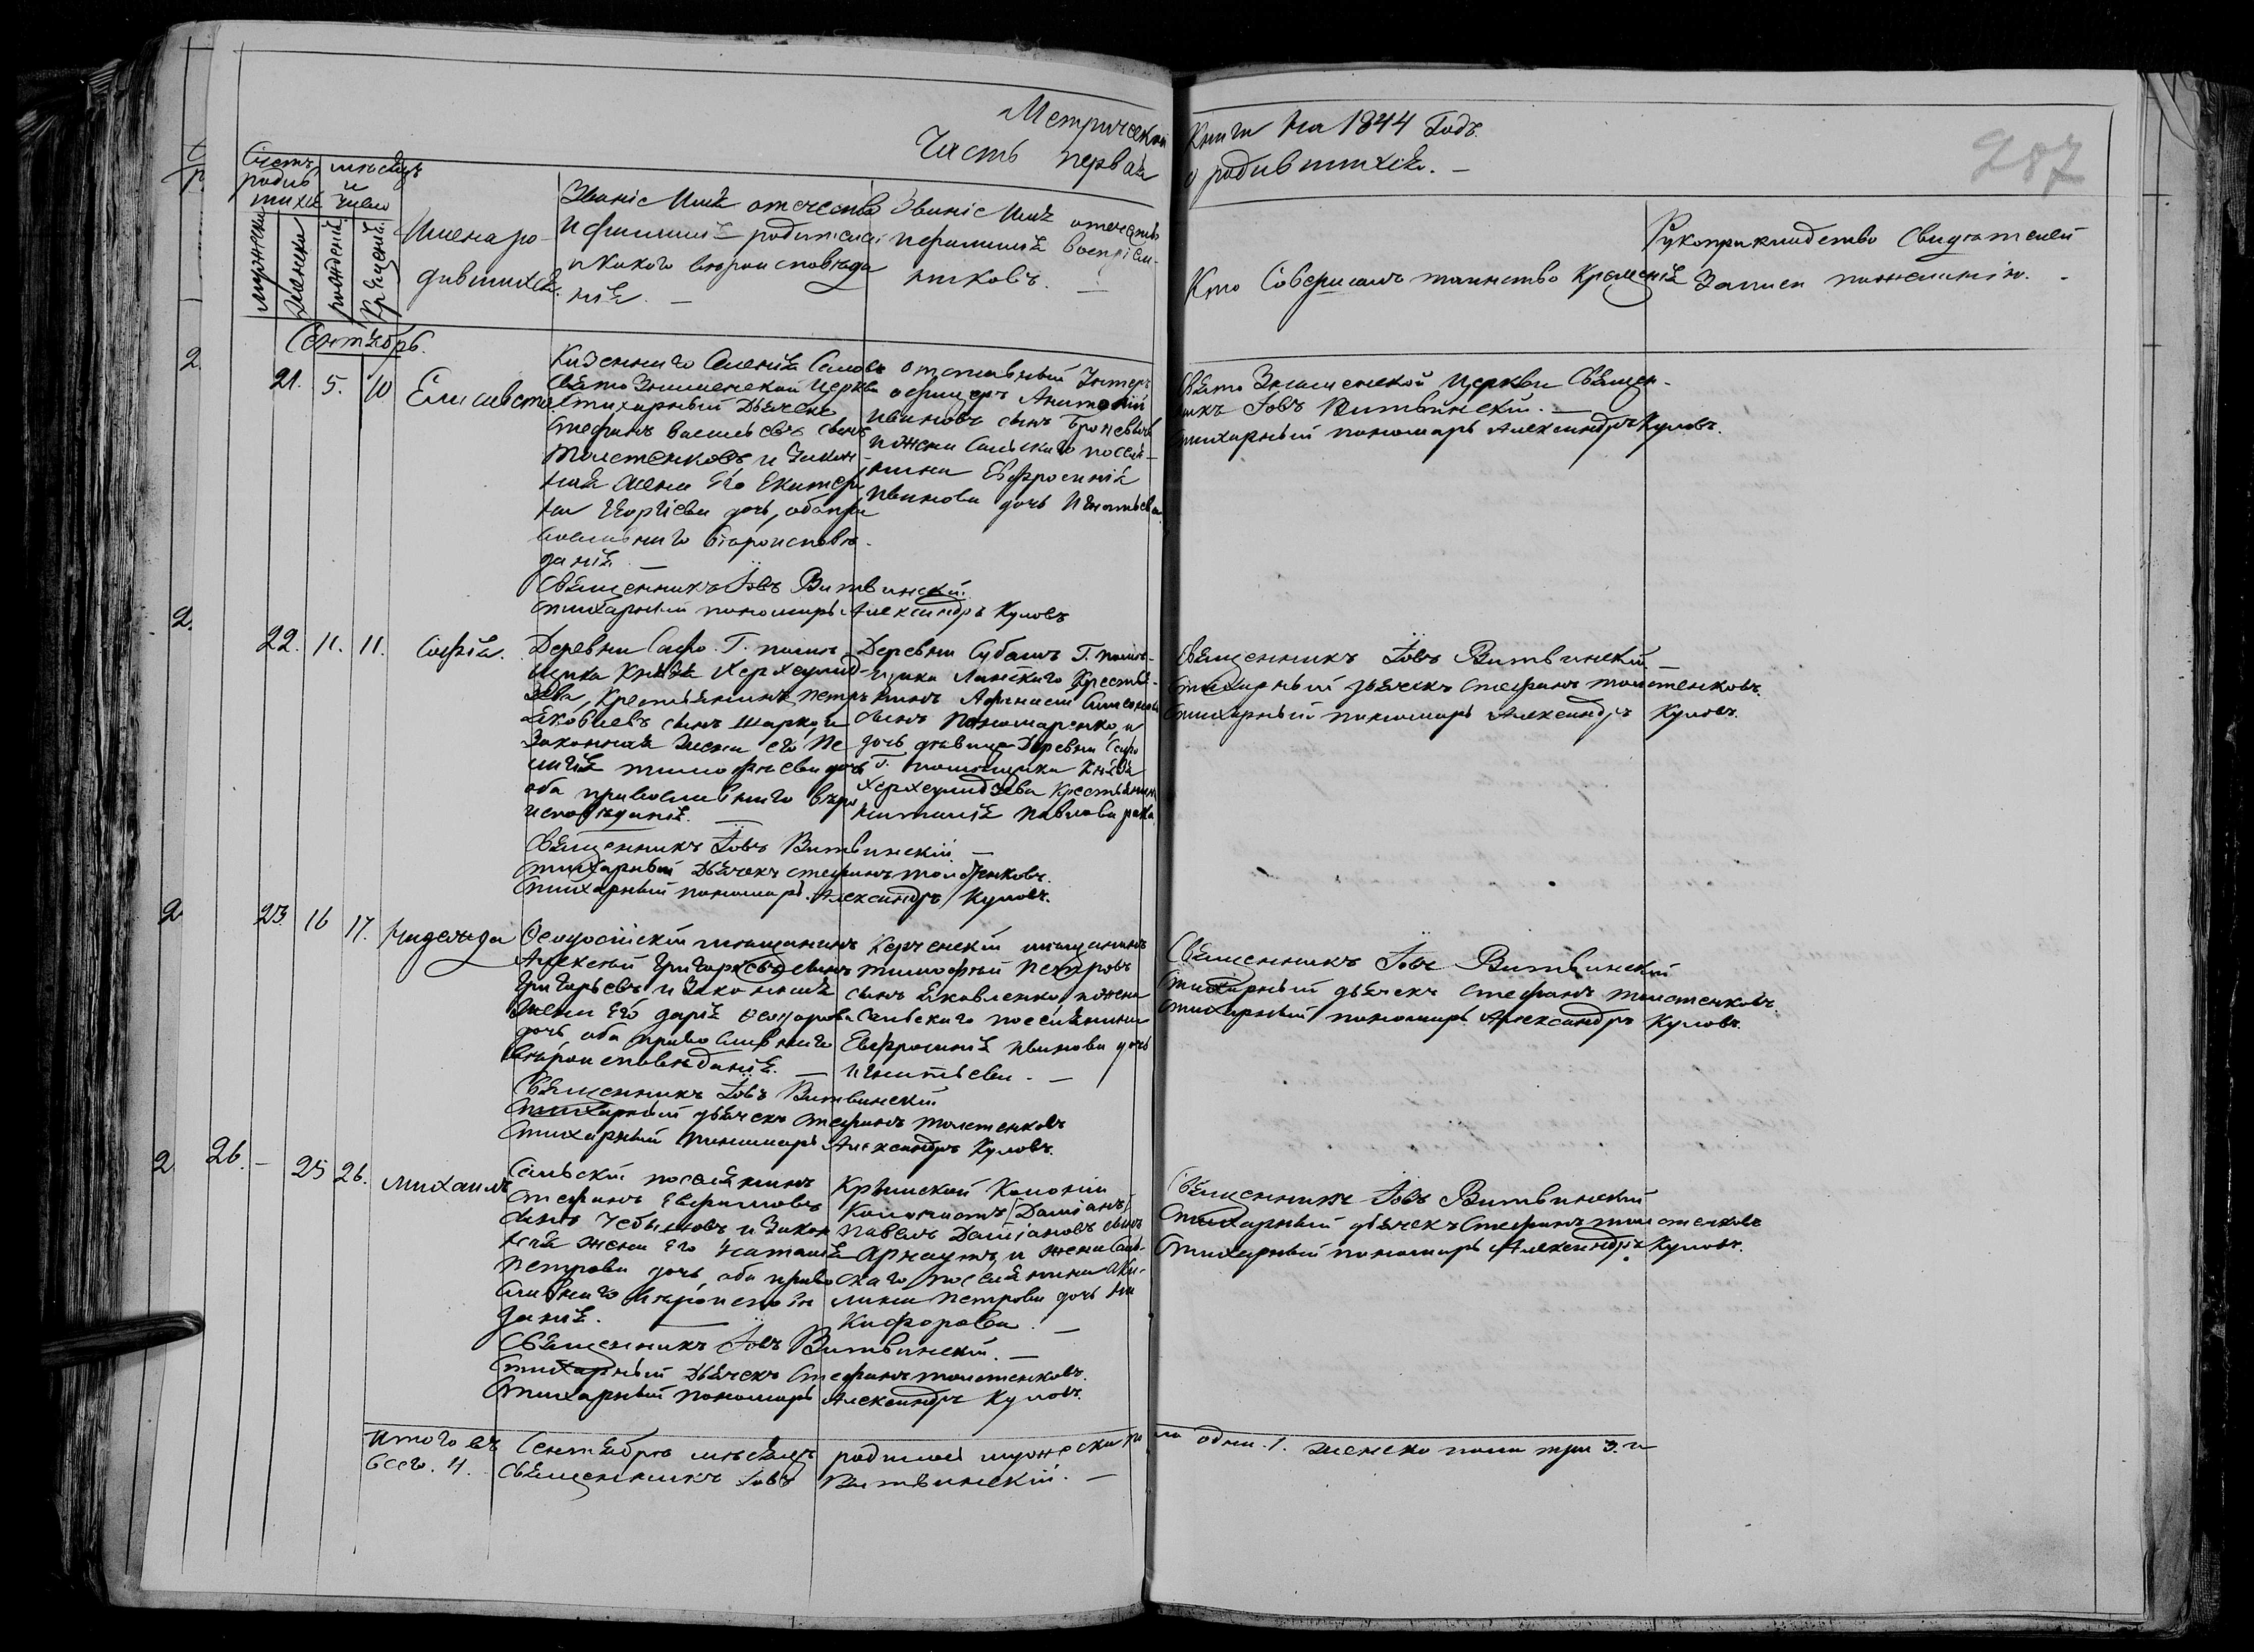 Метрической Книги на 1844 Годъ.
Часть первая о родившихся. —
287
Счетъ родившихся
мѣсяцъ и число
мужеска
женска
рожденія
Крещенія
Имена родившихся.
Званіе Имя отчество
и фамилія родителей
и какого вѣроисповѣда
нія. —
Званіе Имя отчество
и фамилія воспріем-
никовъ. —
Кто Совершалъ таинство Крещенія
Рукоприкладство Свидѣтелей
Записи по желанію. -
Сентябрь.
2.
21. 5. 10 Елисавета
Казеннаго Селенія
Свято Знаменской Церкви
Стихарный Дьячекъ
Стефанъ Васильевъ сынъ
Толстенковъ и закон-
ная жена Его Екатери
на Георгіева дочь, оба пра
вославнаго вѣроисповѣ-
данія. —
Священникъ Іовъ Витвинскій.
Стихарный пономарь Александръ Куловъ
отставный Унтеръ
офицеръ Антоній
Ивановъ сынъ
и жена Сельскаго посел-
янина Евфросинія
Иванова дочь Игнатьева.
Свято Знаменской Церкви Священ-
никъ Іовъ Витвинскій. —
Стихарный пономарь Александръ Куловъ.
2.
22. 11. 11. Софія.
Деревни Саро Г. помѣ-
щика Князя Херхеулид-
зева, Крестьянинъ Петръ
Яковлевъ сынъ Шарко, и
Законная жена его Пе
лагія Тимофѣева дочь
оба православнаго вѣро
исповѣданія. —
Священникъ Іовъ Витвинскій —
Стихарный Дьячекъ Стефанъ Толстенковъ.
Стихарный пономарь Александръ Куловъ.
Деревни Субашъ Г. помѣ-
щика Ланскаго Крестья-
нинъ Афанасій Симеоновъ
сынъ Пономаренко, и
дочь дѣвица Деревни Саро
Г. помѣщика Князя
Херхеулидзева Крестьянин
Наталія Павлова
Священникъ Іовъ Витвинскій —
Стихарный дьячекъ Стефанъ Толстенковъ.
Стихарный пономарь Александръ Куловъ.
2
23. 16 17. Надежда
Ѳеодосійскій мѣщанинъ
Алексѣй Григорьевъ сынъ
Григорьевъ и Законная
жена Его Дарія Ѳеодорова
дочь, оба православнаго
вѣроисповѣданія. —
Священникъ Іовъ Витвинскій
Стихарный дьячекъ Стефанъ Толстенковъ
Стихарный пономарь Александръ Куловъ.
Керченскій мѣщанинъ
Тимофѣй Петровъ
сынъ Яковленко, и жена
Сельскаго поселянина
Евфросинія Иванова дочь
Игнатьева. —
Священникъ Іовъ Витвинскій
Стихарный дьячекъ Стефанъ Толстенковъ.
Стихарный пономарь Александръ Куловъ.
2
26. — 25 26. Михаилъ
Сельскій поселянинъ
Стефанъ Евфимовъ
сынъ Чебышовъ и Закон
ная жена Его Наталія
Петрова дочь, оба право
славнаго вѣроисповѣ
данія. —
Священникъ Іовъ Витвинскій. —
Стихарный Дьячекъ Стефанъ Толстенковъ.
Стихарный пономарь Александръ Куловъ.
Крымской Колоніи
Колонистъ [Даміанъ]
Павелъ Даміановъ сынъ
Арнаутъ, и жена Сель-
скаго поселянина Аку-
лина Петрова дочь Ни
кифорова. —
Священникъ Іовъ Витвинскій
Стихарный дьячекъ Стефанъ Толстенковъ
Стихарный пономарь Александръ Куловъ.
Итого въ Сентябрѣ мѣсяцѣ родилось мужеска по ла одна. 1. женска пола три 3. и
всего. 4. Священникъ Іовъ Витвинскій. —